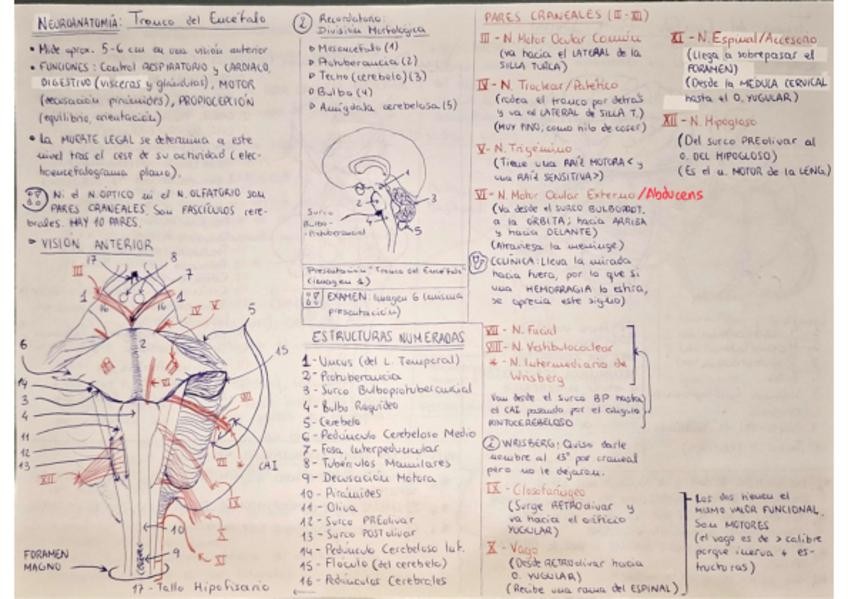 NEUROANATOMÍA: Tronco del Encéfalo
• Mide aprox. 5-6 cm en una visión anterior
• FUNCIONES: Control RESPIRATORIO y CARDIACO,
DIGESTIVO (vísceras y glándulas), MOTOR
(decusación pirámides), PROPIOCEPCIÓN
(equilibrio, orientación)
• La MUERTE LEGAL se determina a este
nivel tras el cese de su actividad (elec-
troencefalograma plano).
Ni el N. ÓPTICO ni el N. OLFATORIO son
PARES CRANEALES. Son FASCÍCULOS cere-
brales. HAY 10 PARES.
VISIÓN ANTERIOR
17
8
7
III
1
16
16
1
IV
V
5
2
6
15
VI
14
3
4
VIII
11
12
13
CAI
VII
IX
XII
X
10
XI
9
FORAMEN
MAGNO
17 - Tallo Hipofisario
2 Recordatorio:
División Morfológica
Mesencéfalo (1)
Protuberancia (2)
Techo (cerebelo) (3)
Bulbo (4)
Amígdala cerebelosa (5)
1
2
3
4
5
Surco
Bulbo-
-Protuberancial
Presentación "Tronco del Encéfalo"
(Imagen 1)
EXAMEN: Imagen 6 (misma
presentación)
ESTRUCTURAS NUMERADAS
1 - Uncus (del L. Temporal)
2 - Protuberancia
3 - Surco Bulboprotuberancial
4 - Bulbo Raquídeo
5 - Cerebelo
6 - Pedúnculo Cerebeloso Medio
7 - Fosa Interpeduncular
8 - Tubérculos Mamilares
9 - Decusación Motora
10 - Pirámides
11 - Oliva
12 - Surco PREolivar
13 - Surco POSTolivar
14 - Pedúnculo Cerebeloso Inf.
15 - Flóculo (del cerebelo)
16 - Pedúnculos Cerebrales
PARES CRANEALES (III - XII)
III - N. Motor Ocular Común
(va hacia el LATERAL de la
SILLA TURCA)
IV - N. Troclear/Patético
(rodea el tronco por detrás
y va al LATERAL de SILLA T.)
(MUY FINO, como hilo de coser)
V - N. Trigémino
(Tiene una RAÍZ MOTORA < y
una RAÍZ SENSITIVA >)
VI - N. Motor Ocular Externo/Abducens
(Va desde el SURCO BULBOPROT.
a la ÓRBITA; hacia ARRIBA
y hacia DELANTE)
(Atraviesa la meninge)
(CLÍNICA: lleva la mirada
hacia fuera, por lo que si
una HEMORRAGIA lo estira,
se aprecia este signo)
VII - N. Facial
VIII - N. Vestibulococlear
* - N. Intermediario de
Wrisberg
Van desde el surco BP hasta
el CAI pasando por el ángulo
PONTOCEREBELOSO
WRISBERG: Quiso darle
nombre al 13º par craneal
pero no le dejaron.
IX - Glosofaríngeo
(Surge RETROolivar y
va hacia el orificio
YUGULAR)
X - Vago
(Desde RETROolivar hacia
O. YUGULAR)
(Recibe una rama del ESPINAL)
XI - N. Espinal/Accesorio
(Llega a sobrepasar el
FORAMEN)
(Desde la MÉDULA CERVICAL
hasta el O. YUGULAR)
XII - N. Hipogloso
(Del surco PREolivar al
O. DEL HIPOGLOSO)
(Es el n. MOTOR de la LENG.)
Los dos tienen el
MISMO VALOR FUNCIONAL.
Son MOTORES
(el vago es de > calibre
porque inerva + es-
tructuras)